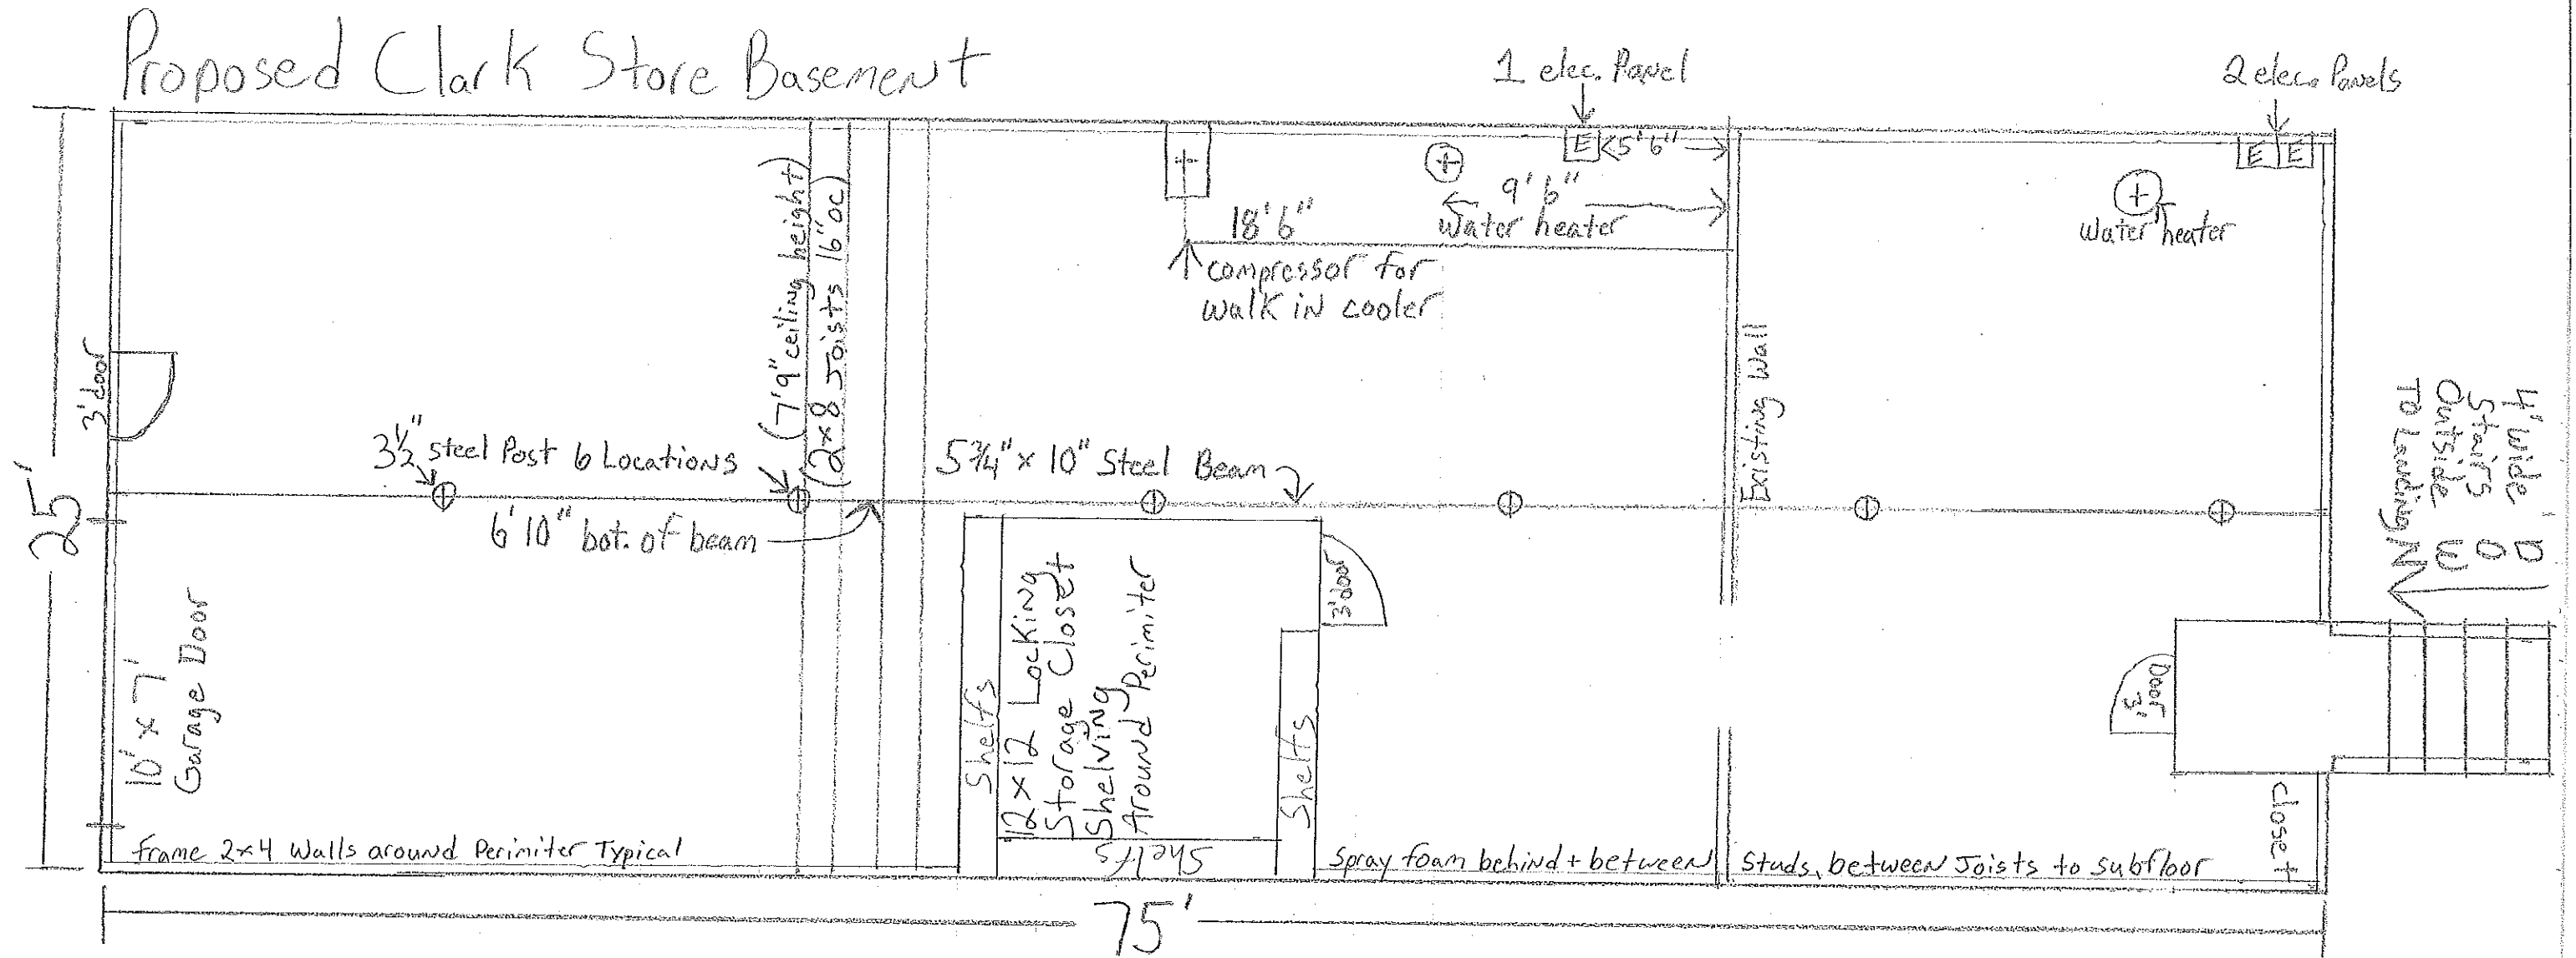 Proposed Clark Store Basement
1 elec. Panel
2 elec. Panels
E
<5'6"→
E E
9'6"
Water heater
18'6"
compressor for
walk in cooler
Water heater
(7'9" ceiling height)
(2x8 Joists 16"oc)
3' door
3½" steel Post 6 Locations
5¾" x 10" Steel Beam
6'10" bot. of beam
Existing Wall
4' wide
Stairs
Outside
To Landing
DOWN
25'
10' x 7'
Garage Door
Shelfs
12x12 Locking
Storage Closet
Shelving
Around Perimiter
3' door
Shelfs
Shelfs
Door
3'
closet
frame 2x4 Walls around Perimiter Typical
Spray foam behind + between Studs, between Joists to subfloor
75'